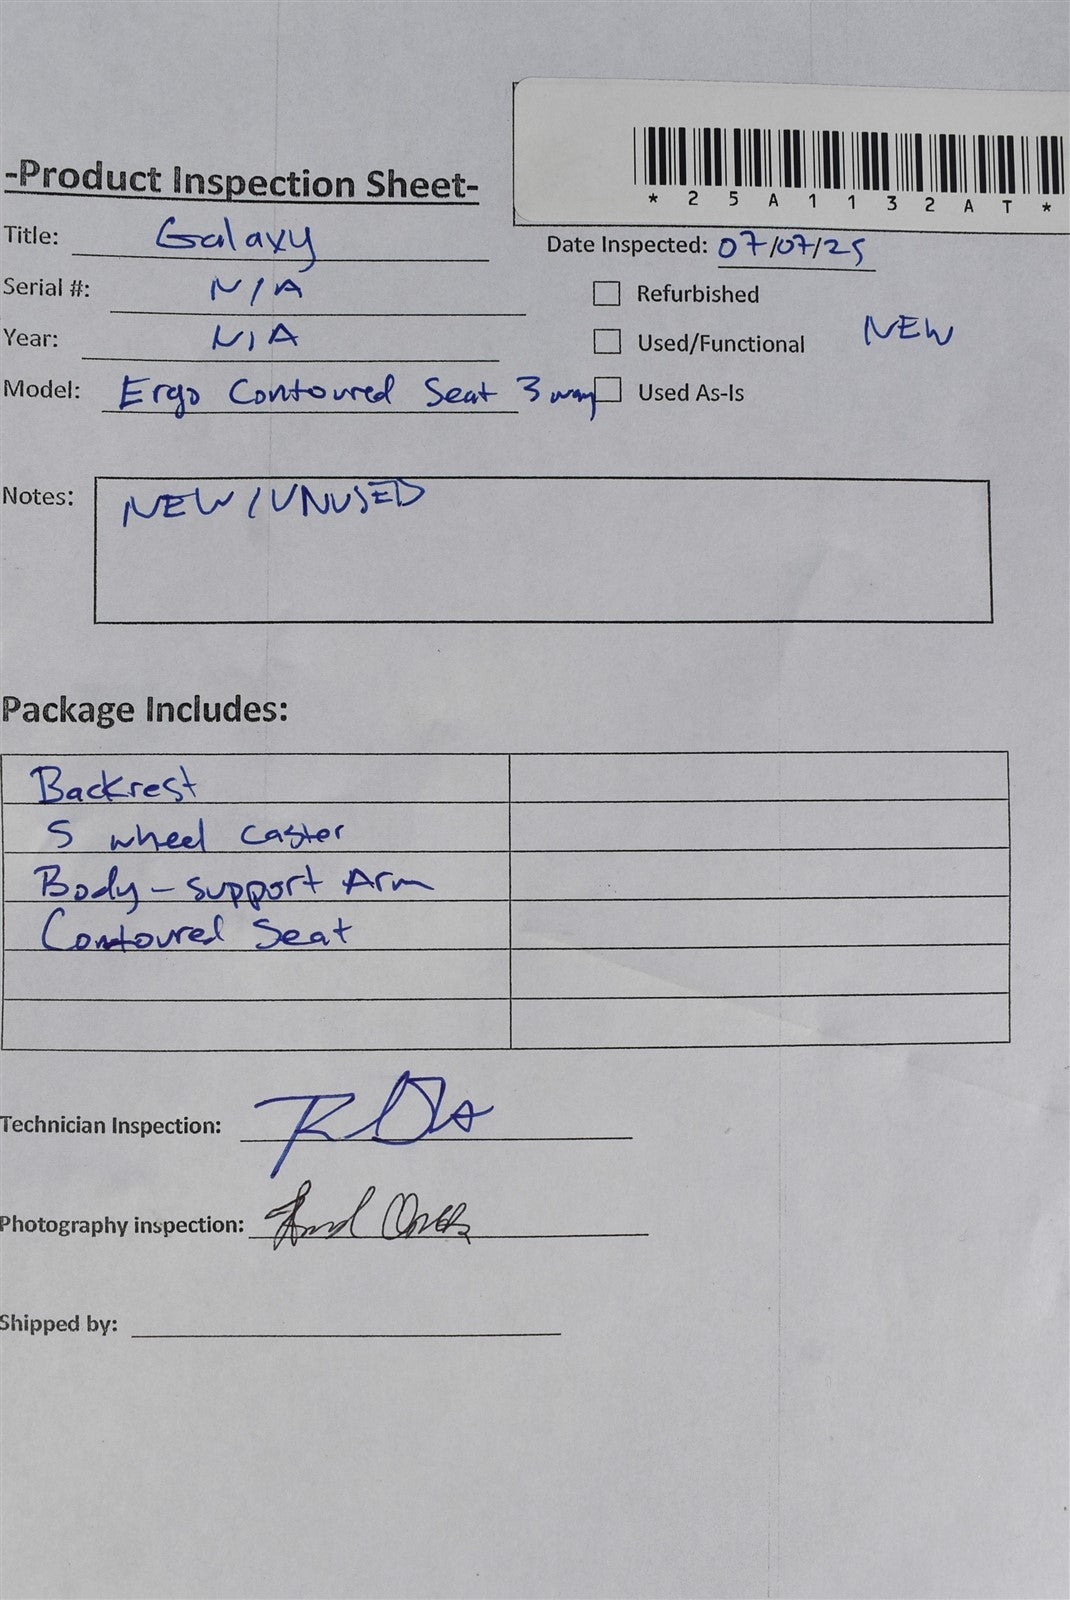 *25A1132AT*
-Product Inspection Sheet-
Title: Galaxy
Date Inspected: 07/07/25
Serial #: N/A
Refurbished
Year: N/A
Used/Functional NEW
Model: Ergo Contoured Seat 3 way
Used As-Is
Notes: NEW/UNUSED
Package Includes:
Backrest
5 wheel caster
Body-support Arm
Contoured Seat
Technician Inspection:
Photography inspection:
Shipped by: